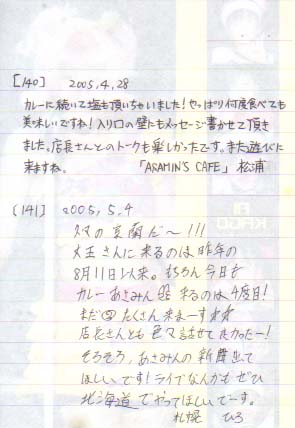 [140] 2005,4,28
カレーに続いて塩も頂いちゃいました!やっぱり何度食べても
美味しいですね!入り口の壁にもメッセージ書かせて頂き
ました。店長さんとのトークも楽しかったです。また遊びに
来ますね。 「ASAMIN'S CAFE」 松浦
[141] 2005,5,4
久々の豆蘭だ~!!!
大王さんに来るのは昨年の
8月11日以来。もちろん今日も
カレー あさみん 来るのは4度目!
まだ たくさん来まーす
店長さんとも色々話せてよかったー!
そろそろ、あさみんの新譜出て
ほしいです!ライブなんかもぜひ
北海道でやってほしいでーす。
札幌 ひろ